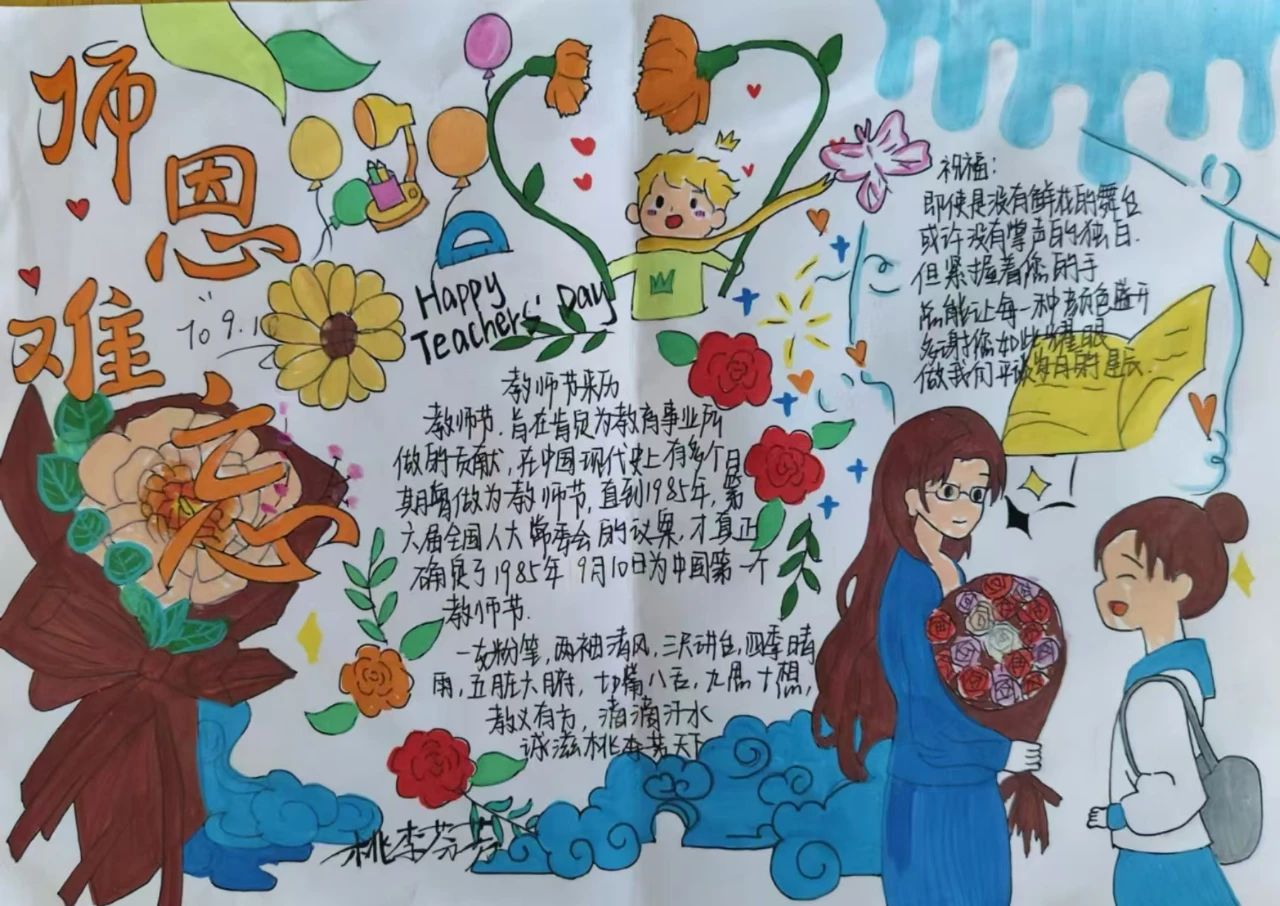 师恩
难忘
To 9.10
Happy
Teachers' Day
教师节来历
教师节,旨在肯定为教育事业所
做的贡献,在中国现代史上有多个日
期曾做为教师节,直到1985年,第
六届全国人大常委会的议案,才真正
确定了1985年 9月10日为中国第一个
教师节.
一支粉笔,两袖清风,三尺讲台,四季晴
雨,五脏六腑,七嘴八舌,九思十想,
教义有方,滴滴汗水
诚滋桃李芳天下
桃李芬芳
祝福:
即使是没有鲜花的舞台
或许没有掌声的独白.
但紧握着您的手
总能让每一种颜色盛开
多谢您如此耀眼
做我们平淡岁月的星辰.